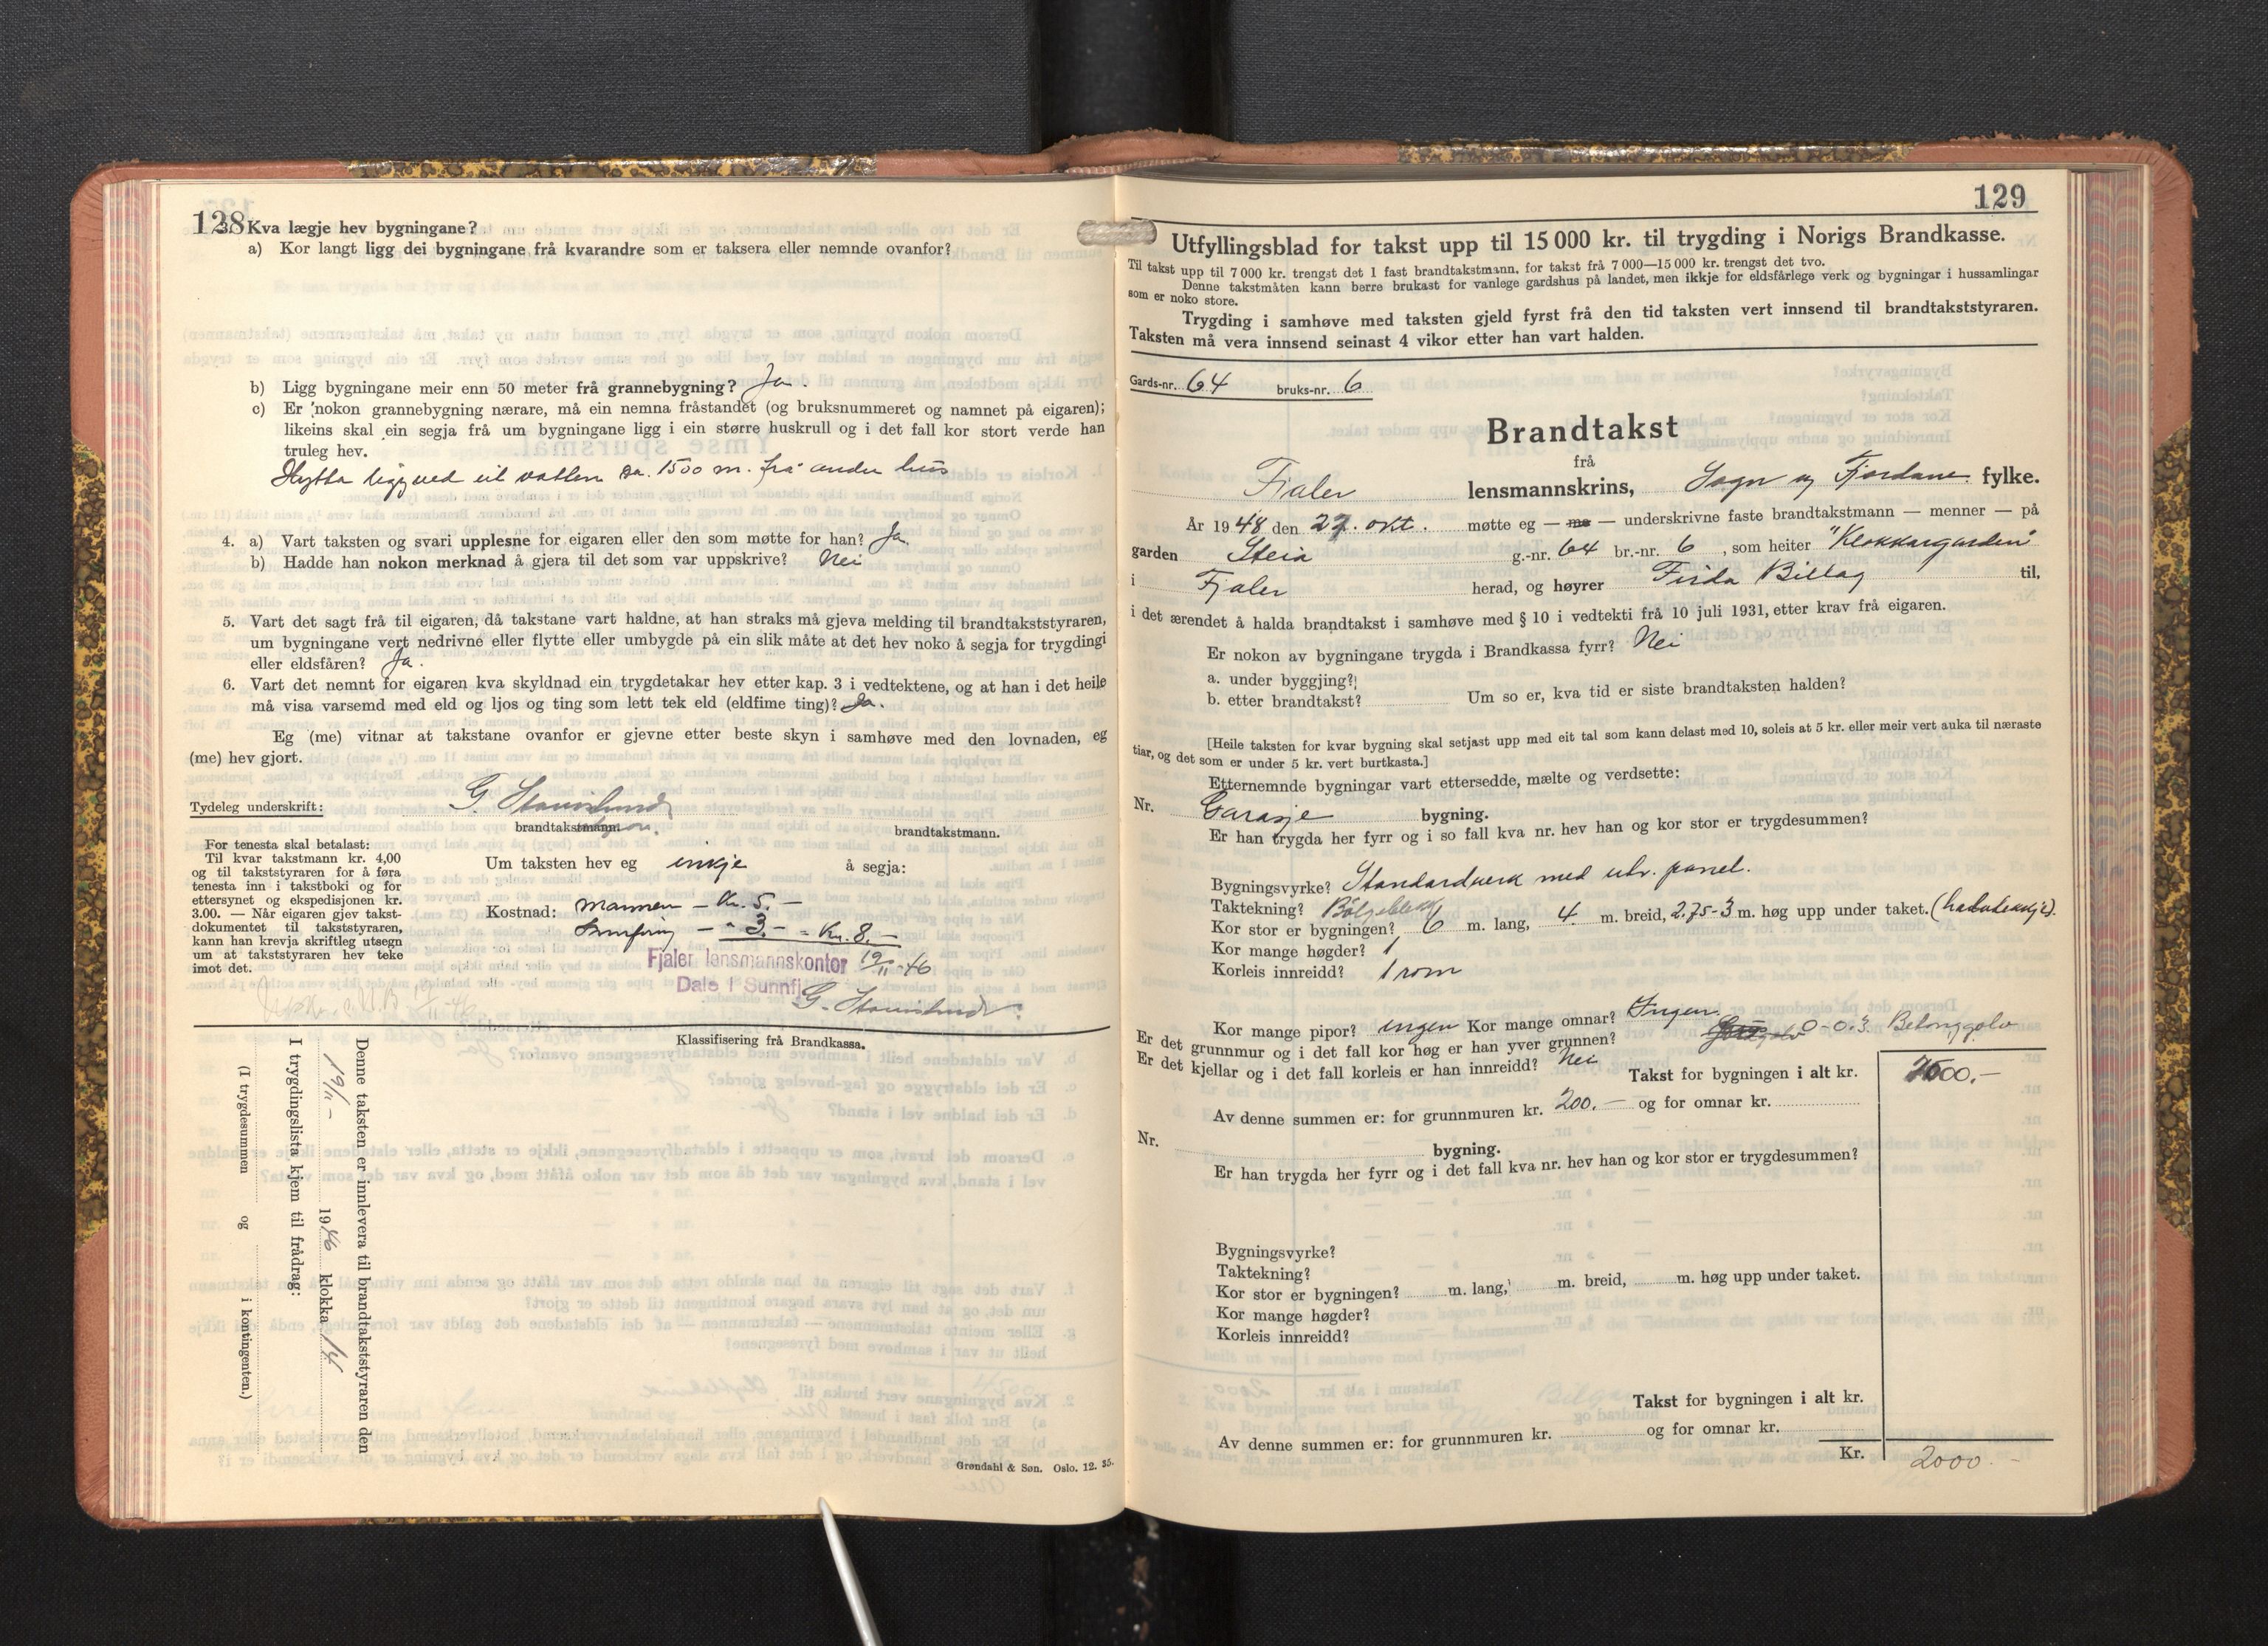 128
3. Kva lægje hev bygningane?
a) Kor langt ligg dei bygningane frå kvarandre som er taksera eller nemnde ovanfor?
b) Ligg bygningane meir enn 50 meter frå grannebygning? Ja.
c) Er nokon grannebygning nærare, må ein nemna fråstandet (og bruksnummeret og namnet på eigaren);
likeins skal ein segja frå um bygningane ligg i ein større huskrull og i det fall kor stort verde han
truleg hev.
Hytta ligg ved eit vatten ca. 1500 m. frå andre hus
4. a) Vart taksten og svari upplesne for eigaren eller den som møtte for han? Ja
b) Hadde han nokon merknad å gjera til det som var uppskrive? Nei
5. Vart det sagt frå til eigaren, då takstane vart haldne, at han straks må gjeva melding til brandtakststyraren,
um bygningane vert nedrivne eller flytte eller umbygde på ein slik måte at det hev noko å segja for trygdingi
eller eldsfåren? Ja.
6. Vart det nemnt for eigaren kva skyldnad ein trygdetakar hev etter kap. 3 i vedtektene, og at han i det heile
må visa varsemd med eld og ljos og ting som lett tek eld (eldfime ting)? Ja.
Eg (me) vitnar at takstane ovanfor er gjevne etter beste skyn i samhøve med den lovnaden, eg
(me) hev gjort.
Tydeleg underskrift:
brandtakstmann.
brandtakstmann.
For tenesta skal betalast:
Til kvar takstmann kr. 4,00
og til takststyraren for å føra
tenesta inn i takstboki og for
ettersynet og ekspedisjonen kr.
3.00. — Når eigaren gjev takst-
dokumentet til takststyraren,
kann han krevja skriftleg utsegn
um at takststyraren hev teke
imot det.
Um taksten hev eg inkje å segja:
Kostnad: mannen — Kr. 5. —
— " 3.- = Kr. 8. —
Fjaler lensmannskontor 19/11-46
Dale i Sunnfj.
Klassifisering frå Brandkassa.
Denne taksten er innlevera til brandtakststyraren den
19/11 - 1946 klokka 14
I trygdingslista kjem til frådrag:
(I trygdesummen og i kontingenten.)
Grøndahl & Søn. Oslo. 12. 35.
129
Utfyllingsblad for takst upp til 15 000 kr. til trygding i Norigs Brandkasse.
Til takst upp til 7 000 kr. trengst det 1 fast brandtakstmann, for takst frå 7 000—15 000 kr. trengst det tvo.
Denne takstmåten kann berre brukast for vanlege gardshus på landet, men ikkje for eldsfårlege verk og bygningar i hussamlingar
som er noko store.
Trygding i samhøve med taksten gjeld fyrst frå den tid taksten vert innsend til brandtakststyraren.
Taksten må vera innsend seinast 4 vikor etter han vart halden.
Gards-nr. 64 bruks-nr. 6
Brandtakst
frå
Fjaler lensmannskrins, Sogn og Fjordane fylke.
År 1948 den 27. okt. møtte eg — me — underskrivne faste brandtakstmann — menner — på
garden Steia g.-nr. 64 br.-nr. 6, som heiter "Klokkargarden"
i Fjaler herad, og høyrer Firda Billag til,
i det ærendet å halda brandtakst i samhøve med § 10 i vedtekti frå 10 juli 1931, etter krav frå eigaren.
Er nokon av bygningane trygda i Brandkassa fyrr? Nei
a. under byggjing?
b. etter brandtakst? Um so er, kva tid er siste brandtaksten halden?
[Heile taksten for kvar bygning skal setjast upp med eit tal som kann delast med 10, soleis at 5 kr. eller meir vert auka til næraste
tiar, og det som er under 5 kr. vert burtkasta.]
Etternemnde bygningar vart ettersedde, mælte og verdsette:
Nr. Garasje bygning.
Er han trygda her fyrr og i so fall kva nr. hev han og kor stor er trygdesummen?
Bygningsvyrke? Standardverk med utv. panel.
Taktekning? Bølgeblekk
Kor stor er bygningen? 6 m. lang, 4 m. breid, 2.75-3 m. høg upp under taket.
Kor mange høgder? 1
Korleis innreidd? 1 rom
Kor mange pipor? ingen Kor mange omnar? Ingen.
Er det grunnmur og i det fall kor høg er han yver grunnen? 0-0.3 Betonggolv
Er det kjellar og i det fall korleis er han innreidd? Nei
Takst for bygningen i alt kr. 2000.—
Av denne summen er: for grunnmuren kr. 200.— og for omnar kr.
Nr. bygning.
Er han trygda her fyrr og i det fall kva nr. hev han og kor stor er trygdesummen?
Bygningsvyrke?
Taktekning?
Kor stor er bygningen? m. lang, m. breid, m. høg upp under taket.
Kor mange høgder?
Korleis innreidd?
Takst for bygningen i alt kr.
Av denne summen er: for grunnmuren kr. og for omnar kr.
Kr. 2000.-